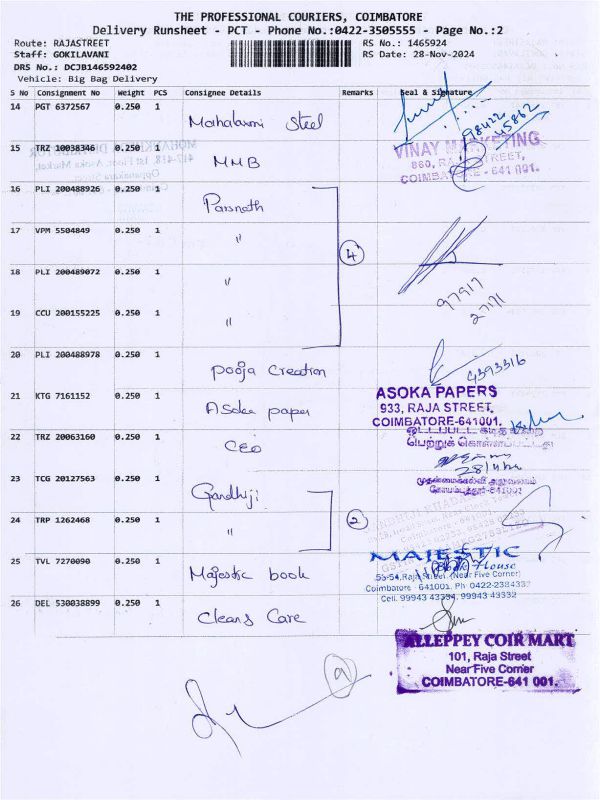 THE PROFESSIONAL COURIERS, COIMBATORE
Delivery Runsheet - PCT - Phone No.:0422-3505555 - Page No.:2
Route: RAJASTREET
RS No.: 1465924
Staff: GOKILAVANI
RS Date: 28-Nov-2024
DRS No.: DCJB146592402
Vehicle: Big Bag Delivery
S No Consignment No Weight PCS Consignee Details Remarks Seal & Signature
14 PGT 6372567 0.250 1 Mahalaxmi Steel
98422
45862
15 TRZ 10038346 0.250 1 MMB
VINAY MARKETING
860, RAJA STREET,
COIMBATORE - 641 001.
16 PLI 200488926 0.250 1 Parsnath
17 VPM 5504849 0.250 1 "
4
18 PLI 200489072 0.250 1 "
97917
27171
19 CCU 200155225 0.250 1 "
20 PLI 200488978 0.250 1 Pooja Creation
9393316
21 KTG 7161152 0.250 1 ASoka paper
ASOKA PAPERS
933, RAJA STREET,
COIMBATORE-641001.
22 TRZ 20063160 0.250 1 CEO
பெற்றுக் கொள்ளப்பட்டது
முதன்மைக்கல்வி அலுவலகம்
கோயம்புத்தூர்-641001
23 TCG 20127563 0.250 1 Gandhiji
24 TRP 1262468 0.250 1 "
2
25 TVL 7270090 1 0.250 Majestic book
MAJESTIC
Book House
53-54, Raja Street, (Near Five Corner)
Coimbatore - 641001. Ph: 0422-2384337
Cell: 99943 43334, 99943 43332
26 DEL 530038899 0.250 1 Cleans Care
ALLEPPEY COIR MART
101, Raja Street
Near Five Corner
COIMBATORE-641 001.